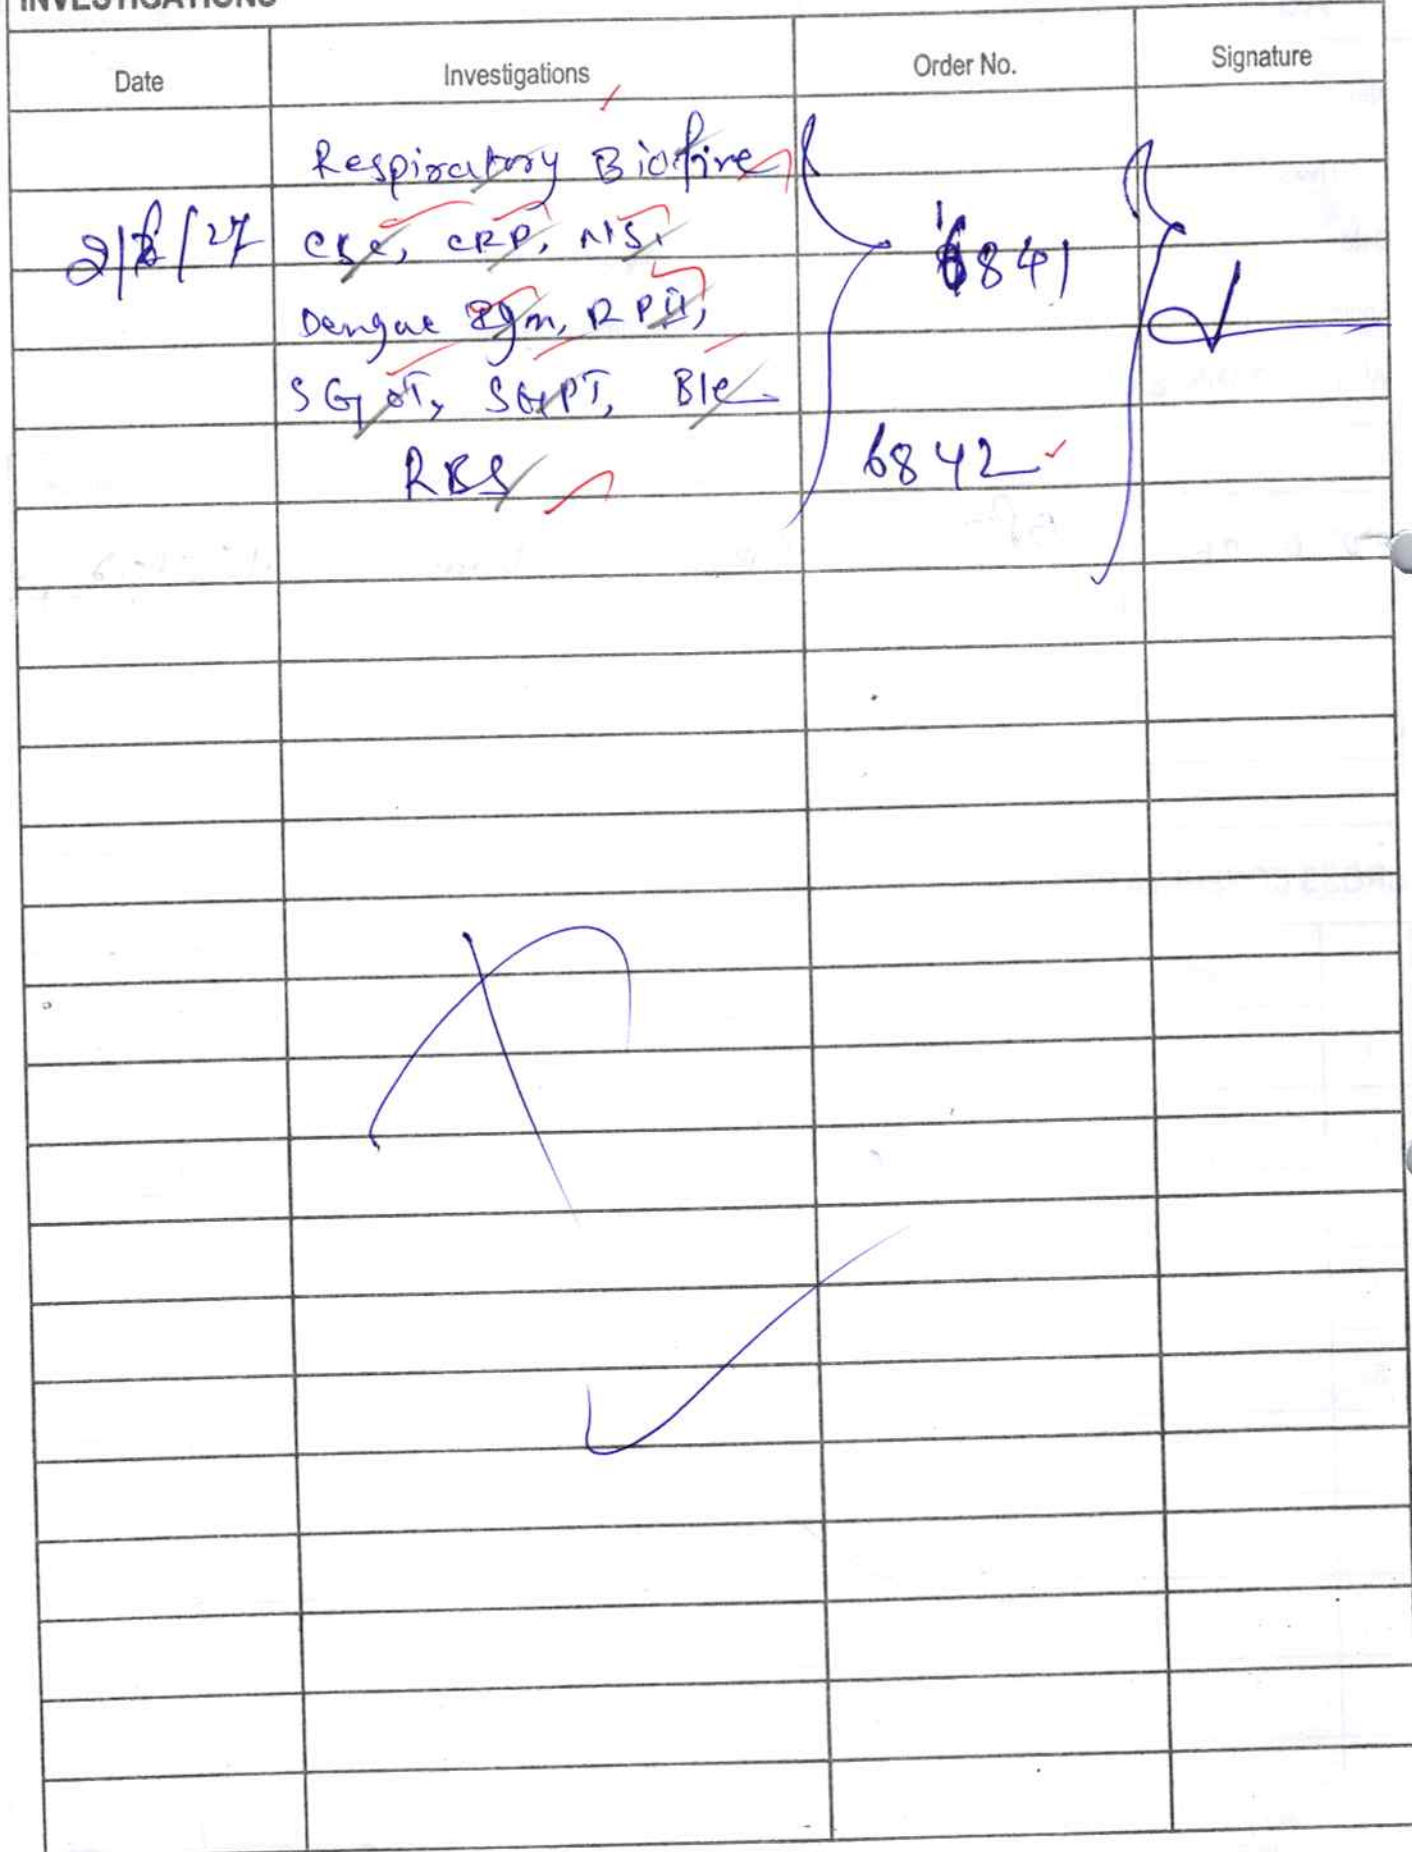 INVESTIGATIONS
Date Investigations Order No. Signature
Respiratory Biofire
2/8/27 CBC, CRP, NS1, 6841
Dengue IgM, RP II,
SGOT, SGPT, B/c
RBS 6842